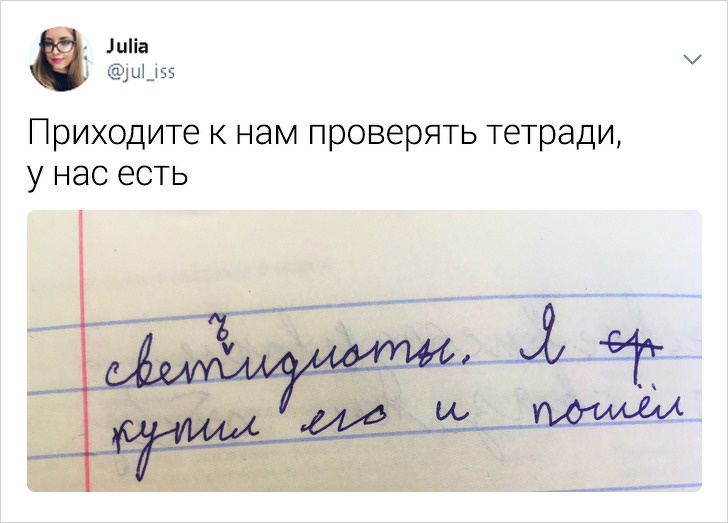 Julia
@jul_iss
Приходите к нам проверять тетради,
у нас есть
светъидиоты. Я
купил его и пошёл